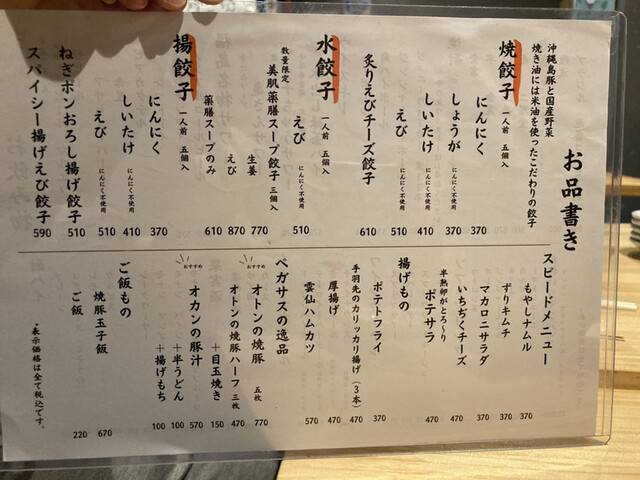 お品書き
沖縄島豚と国産野菜
焼き油には米油を使ったこだわりの餃子
焼餃子 一人前 五個入
にんにく 370
しょうが にんにく不使用 370
しいたけ にんにく不使用 410
えび にんにく不使用 510
炙りえびチーズ餃子 610
水餃子 一人前 五個入
えび にんにく不使用 510
数量限定
美肌薬膳スープ餃子 三個入
生姜 770
えび 870
薬膳スープのみ 610
揚餃子 一人前 五個入
にんにく 370
しいたけ にんにく不使用 410
えび にんにく不使用 510
ねぎポンおろし揚げ餃子 510
スパイシー揚げえび餃子 590
スピードメニュー
もやしナムル 370
ずりキムチ 370
マカロニサラダ 370
いちぢくチーズ 470
半熟卵がとろ〜り
ポテサラ 470
揚げもの
ポテトフライ 370
手羽先のカリッカリ揚げ(3本) 470
厚揚げ 470
雲仙ハムカツ 570
ペガサスの逸品
おすすめ
オトンの焼豚 五枚 770
オトンの焼豚ハーフ 三枚 470
+目玉焼き 150
おすすめ
オカンの豚汁 570
+半うどん 100
+揚げもち 100
ご飯もの
焼豚玉子飯 670
ご飯 220
*表示価格は全て税込です。